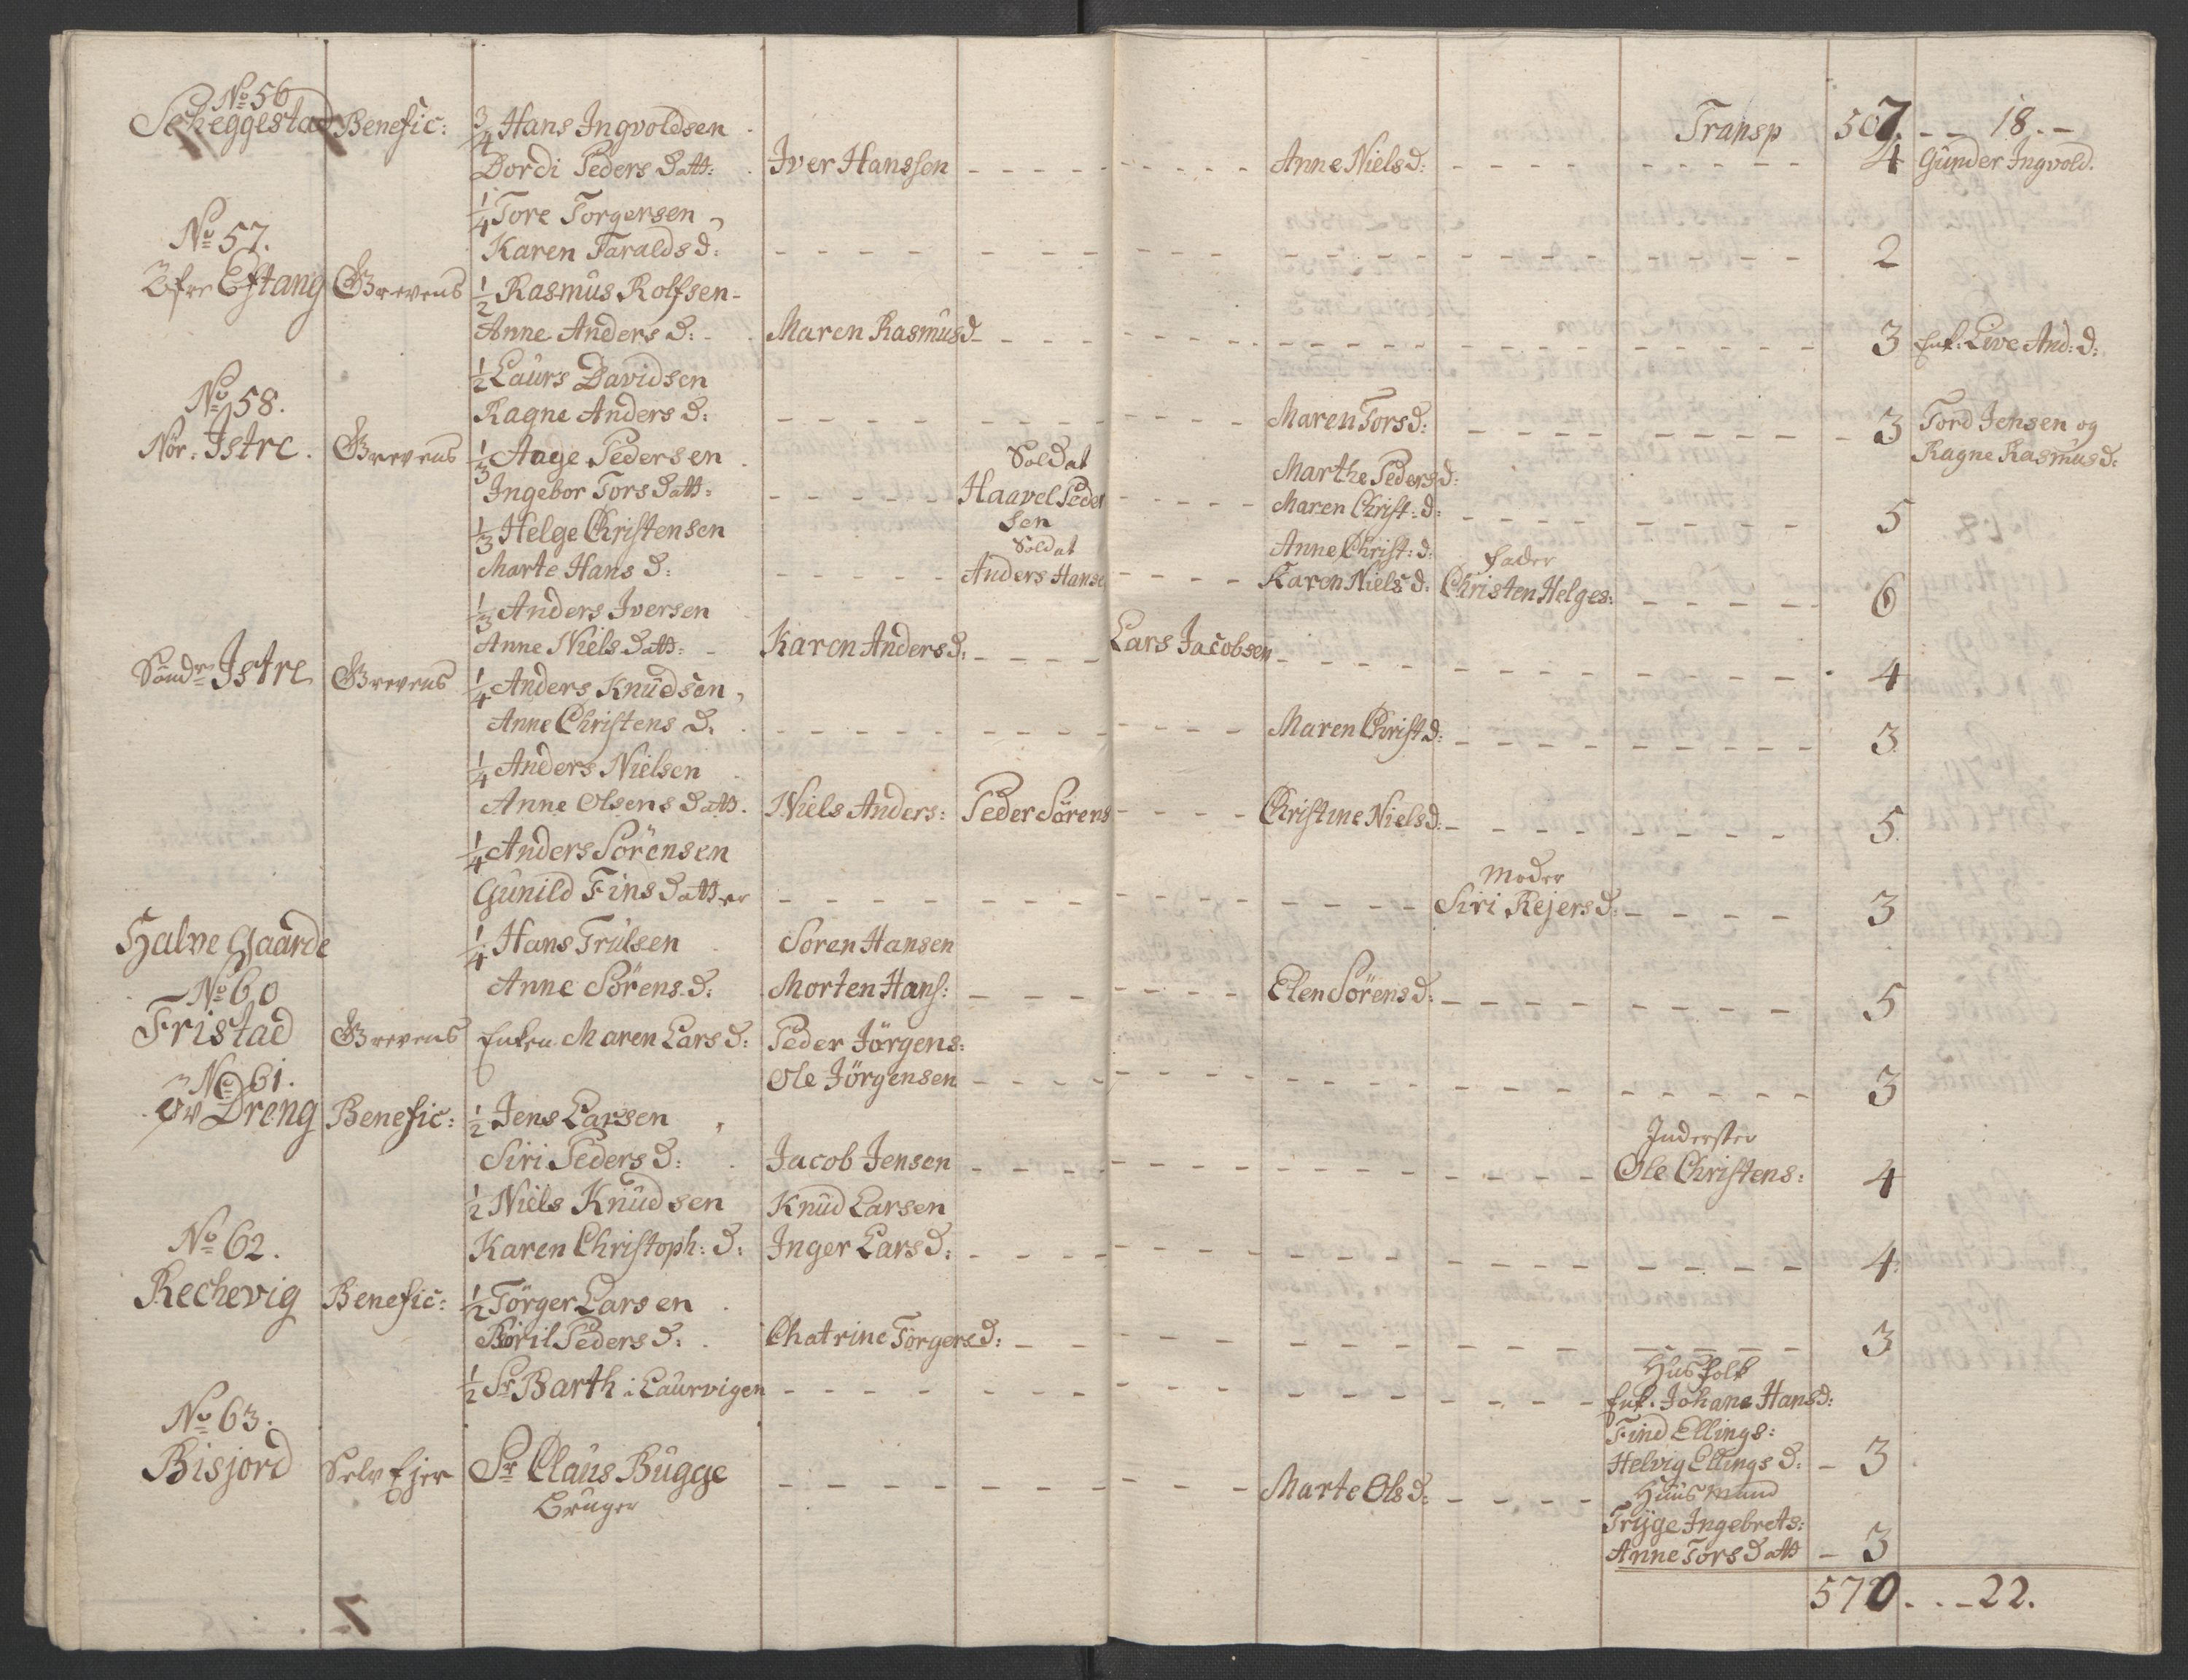 Transp 507. - - 18. -
No 56
Scheggestad Benefic: 3/4 Hans Ingvoldsen
Dordi Peders Datt: Iver Hanssen - - - - Anne Niels d: - - - - 4 Gunder Ingvold.
1/4 Tore Torgersen
Karen Taralds d: - - - - 2
No 57.
Öfre Eftang Grevens 1/2 Rasmus Rolfsen -
Anne Anders d: - Maren Rasmus d - - - - 3 Enk: Live And: d:
1/2 Laurs Davidsen
Ragne Anders d: - - - - Maren Tors d: - - - - 3 Tord Jensen og
Ragne Rasmus d:
No 58.
Nör: Istre. Grevens 1/3 Aage Pedersen Soldat Marthe Peders d:
Ingebor Tors Datt: - - - - Haavel Peder - - - - Maren Christ: d: - - - - 5
sen
1/3 Helge Christensen Soldat Anne Christ: d: Fader
Marte Hans d: - - - - Anders Hanse - - - - Karen Niels d: Christen Helges: - - - - 6
1/3 Anders Iversen
Anne Niels Datt: - Karen Anders d: - - - - Lars Jacobsen - - - - 4
Sönd:re Istre Grevens 1/4 Anders Knudsen
Anne Christens d. - - - - Maren Christ d: - - - - 3
1/4 Anders Nielsen
Anne Olsens Datt. Niels Anders: Peder Sörens - - - - Christine Niels d: - - - - 5.
1/4 Anders Sörensen Moder
Gunild Fins Datter - - - - Siri Rejers d: - - - - 3
1/4 Hans Trulsen Soren Hansen
Anne Sörens d: Morten Hans: - - - - Elen Sörens d: - - - - 5
Halve Gaarde
No 60
Fristad Grevens Enken Maren Lars d: Peder Jörgens:
Ole Jörgensen - - - - 3
No 61.
Öv Dreng Benefic: 1/2 Jens Larsen Inderster
Siri Peders d: Jacob Jensen - - - - Ole Christens: 4
1/2 Niels Knudsen Knud Larsen
Karen Christoph: d: Inger Lars d: - - - - 4
No 62.
Rechevig Benefic: 1/2 Törger Larsen
Böril Peders d: Chatrine Törgers d: - - - - 3
1/2 Sr Barth i Laurvigen - - - - Husfolk
Enk. Johane Hans d:
Find Ellings:
Helvig Ellings d: - 3
No 63.
Bisjord Selv Ejer Sr Claus Bugge - - - - Marte Ols d: - - - - Huusmand
Bruger Tryge Ingebrets:
Anne Tors Datt - 3
570. - - 22.
7